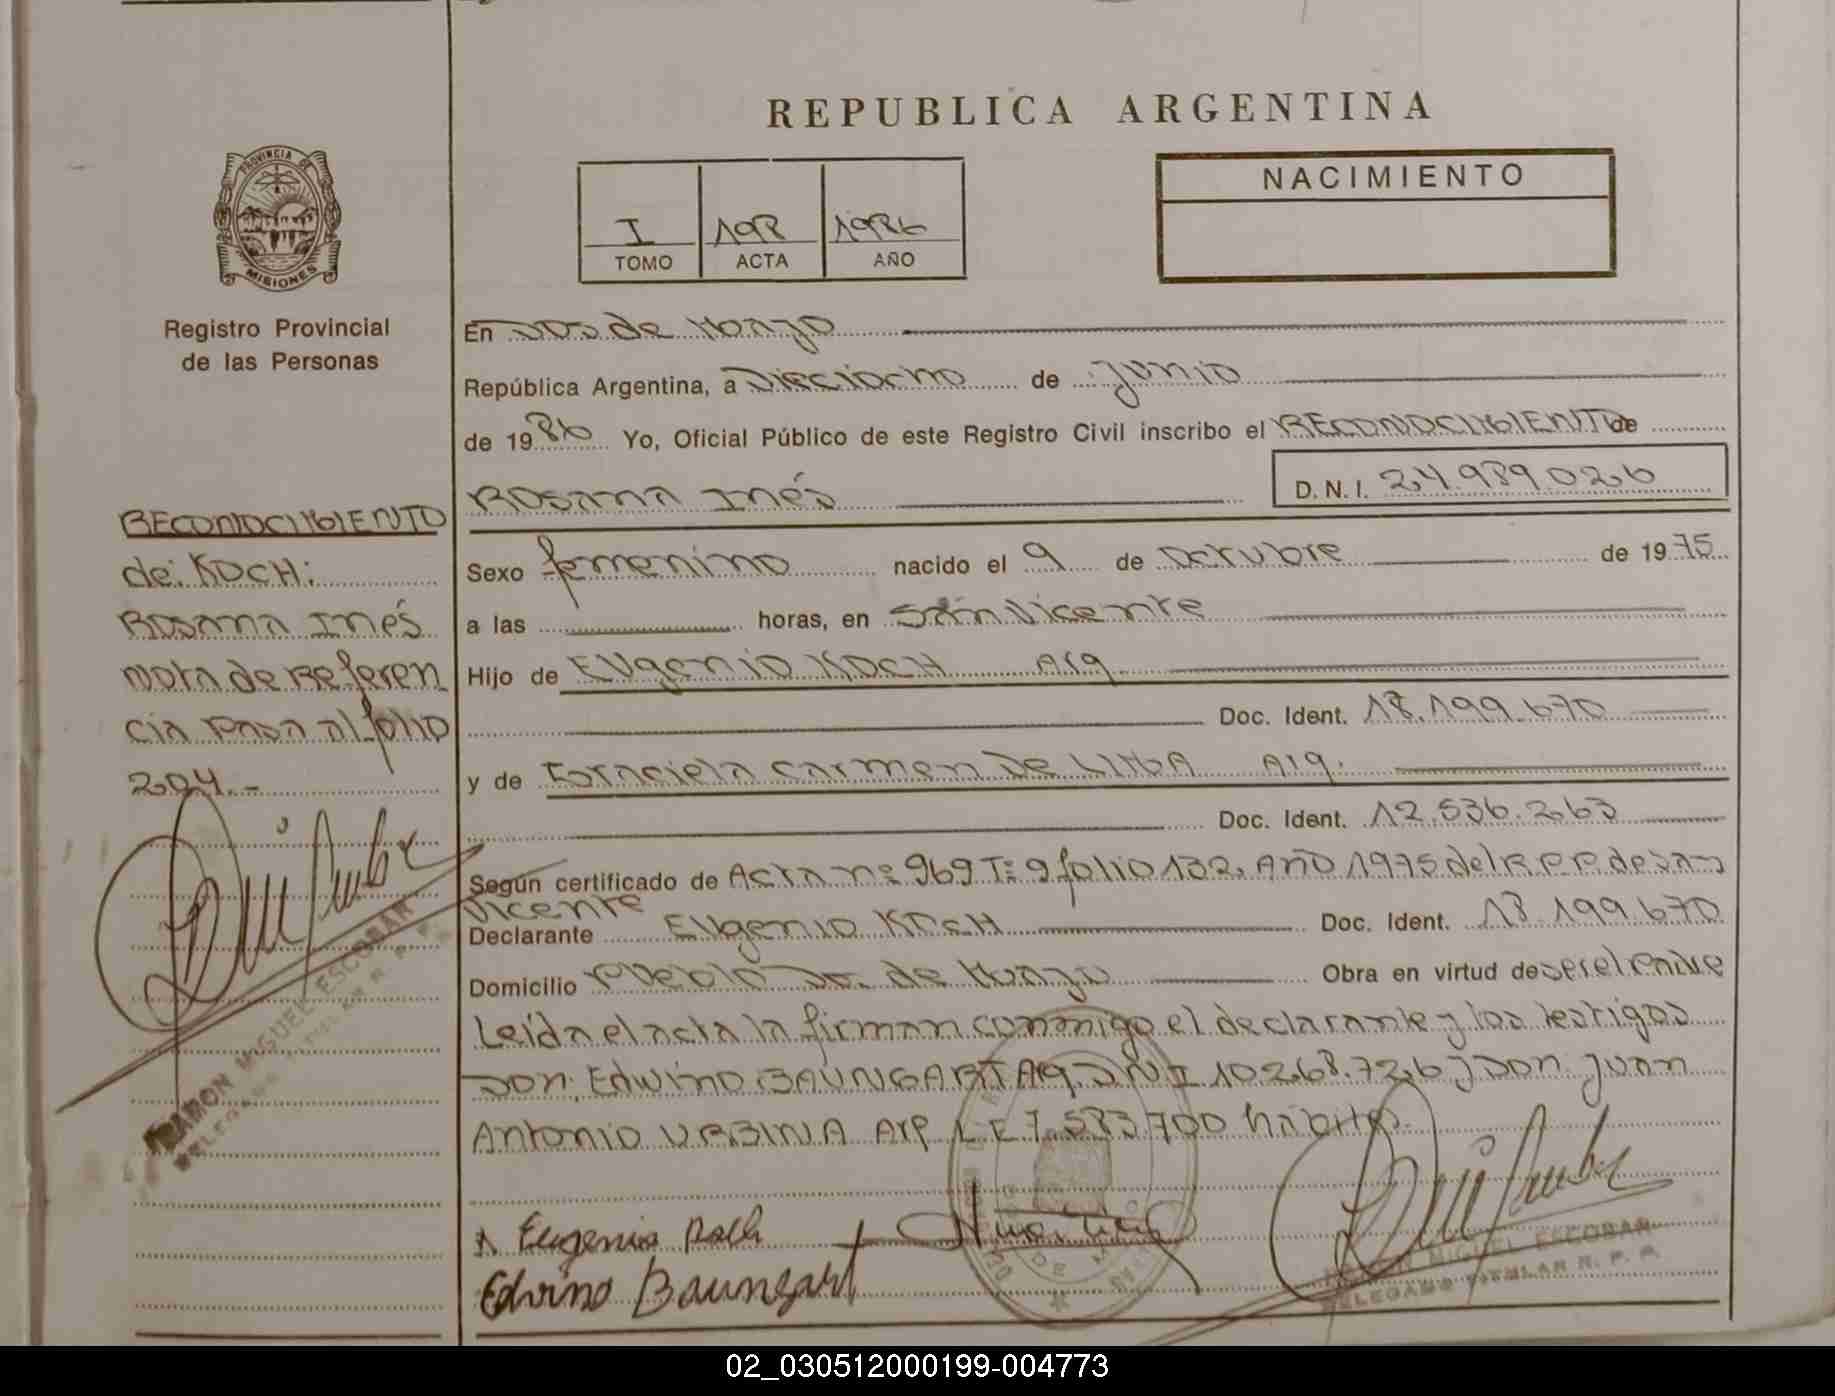 REPUBLICA ARGENTINA
PROVINCIA DE
MISIONES
Registro Provincial
de las Personas
I 198 1986
TOMO ACTA AÑO
NACIMIENTO
En Dos de Mayo
República Argentina, a Dieciocho de Junio
de 1986 Yo, Oficial Público de este Registro Civil inscribo el RECONOCIMIENTO de
Rosana Inés D. N. I. 24.989.026
Sexo femenino nacido el 9 de octubre de 1975
a las horas, en San Vicente
Hijo de Eugenio KOCH Arg
Doc. Ident. 18.199.670
y de Graciela Carmen De LIMA Arg.
Doc. Ident. 12.536.263
Según certificado de Acta nº 969 Tº 9 folio 132, Año 1975 del R.P.P. de San
Vicente
Declarante Eugenio KOCH Doc. Ident. 18.199.670
Domicilio Pueblo Dos de Mayo Obra en virtud de ser el Padre
Leída el acta la firman conmigo el declarante y los testigos
Don: Edwino BAUNGART Arg. DNI 10.268.726 y Don Juan
Antonio URBINA Arg L E 7.583.700 hábiles.
Eugenio Koch
Edvino Baungart
RAMON MIGUEL ESCOBAR
DELEGADO TITULAR R. P. P.
RECONOCIMIENTO
de: KOCH:
Rosana Inés
Nota de Referen
cia pasa al folio
204.-
RAMON MIGUEL ESCOBAR
DELEGADO TITULAR R. P. P.
02_030512000199-004773